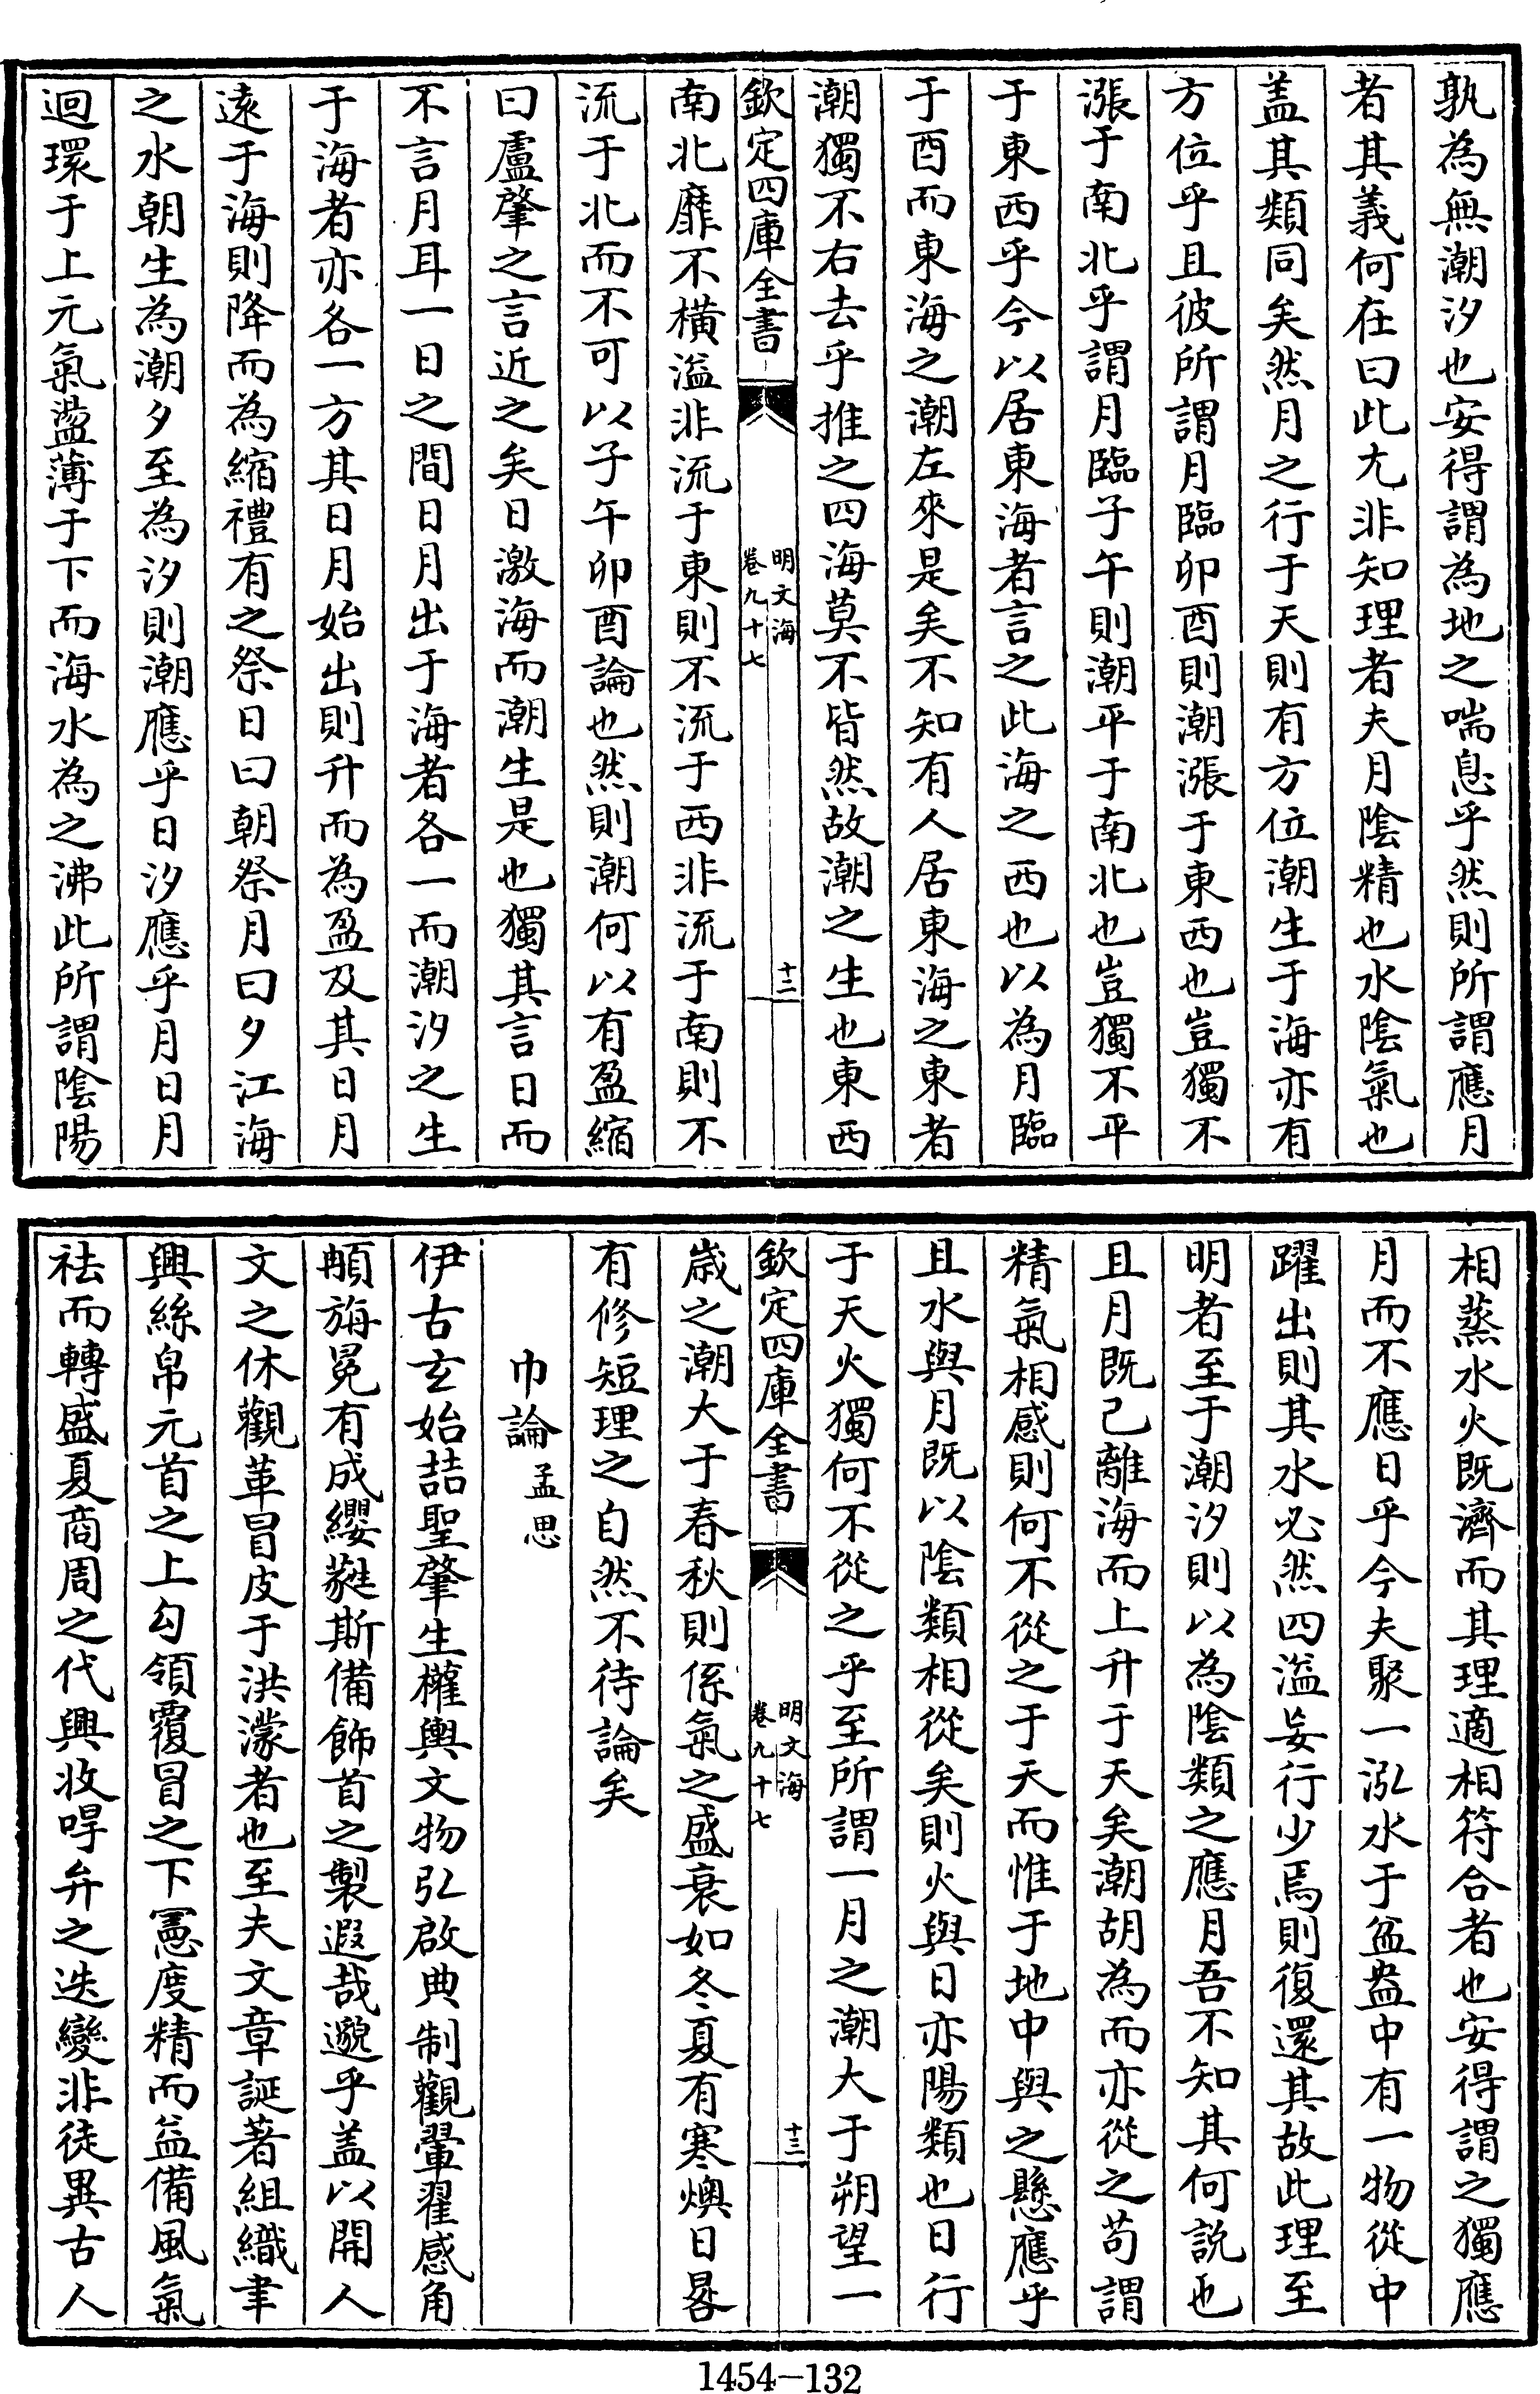 孰為無潮汐也安得謂為地之喘息乎然則所謂應月
者其義何在曰此尤非知理者夫月陰精也水陰氣也
盖其類同矣然月之行于天則有方位潮生于海亦有
方位乎且彼所謂月臨卯酉則潮漲于東西也豈獨不
漲于南北乎謂月臨子午則潮平于南北也豈獨不平
于東西乎今以居東海者言之此海之西也以為月臨
于酉而東海之潮左來是矣不知有人居東海之東者
潮獨不右去乎推之四海莫不皆然故潮之生也東西
欽定四庫全書
明文海
卷九十七
十二
南北靡不橫溢非流于東則不流于西非流于南則不
流于北而不可以子午卯酉論也然則潮何以有盈縮
曰盧肇之言近之矣日激海而潮生是也獨其言日而
不言月耳一日之間日月出于海者各一而潮汐之生
于海者亦各一方其日月始出則升而為盈及其日月
逺于海則降而為縮禮有之祭日曰朝祭月曰夕江海
之水朝生為潮夕至為汐則潮應乎日汐應乎月日月
迴環于上元氣盪薄于下而海水為之沸此所謂陰陽
相蒸水火既濟而其理適相符合者也安得謂之獨應
月而不應日乎今夫聚一泓水于盆盎中有一物從中
躍出則其水必然四溢妄行少焉則復還其故此理至
明者至于潮汐則以為陰類之應月吾不知其何説也
且月既已離海而上升于天矣潮胡為而亦從之苟謂
精氣相感則何不從之于天而惟于地中與之懸應乎
且水與月既以陰類相從矣則火與日亦陽類也日行
于天火獨何不從之乎至所謂一月之潮大于朔望一
欽定四庫全書
明文海
卷九十七
十三
歳之潮大于春秋則係氣之盛衰如冬夏有寒燠日晷
有修短理之自然不待論矣
巾論 孟思
伊古玄始喆聖肇生權輿文物弘啟典制觀翬翟感角
䪼旃冕有成纓蕤斯備飾首之製遐哉邈乎盖以開人
文之休觀革冒皮于洪濛者也至夫文章誕著組織聿
興絲帛元首之上勾領覆冒之下憲度精而益備風氣
祛而轉盛夏商周之代興收哻弁之迭變非徒異古人